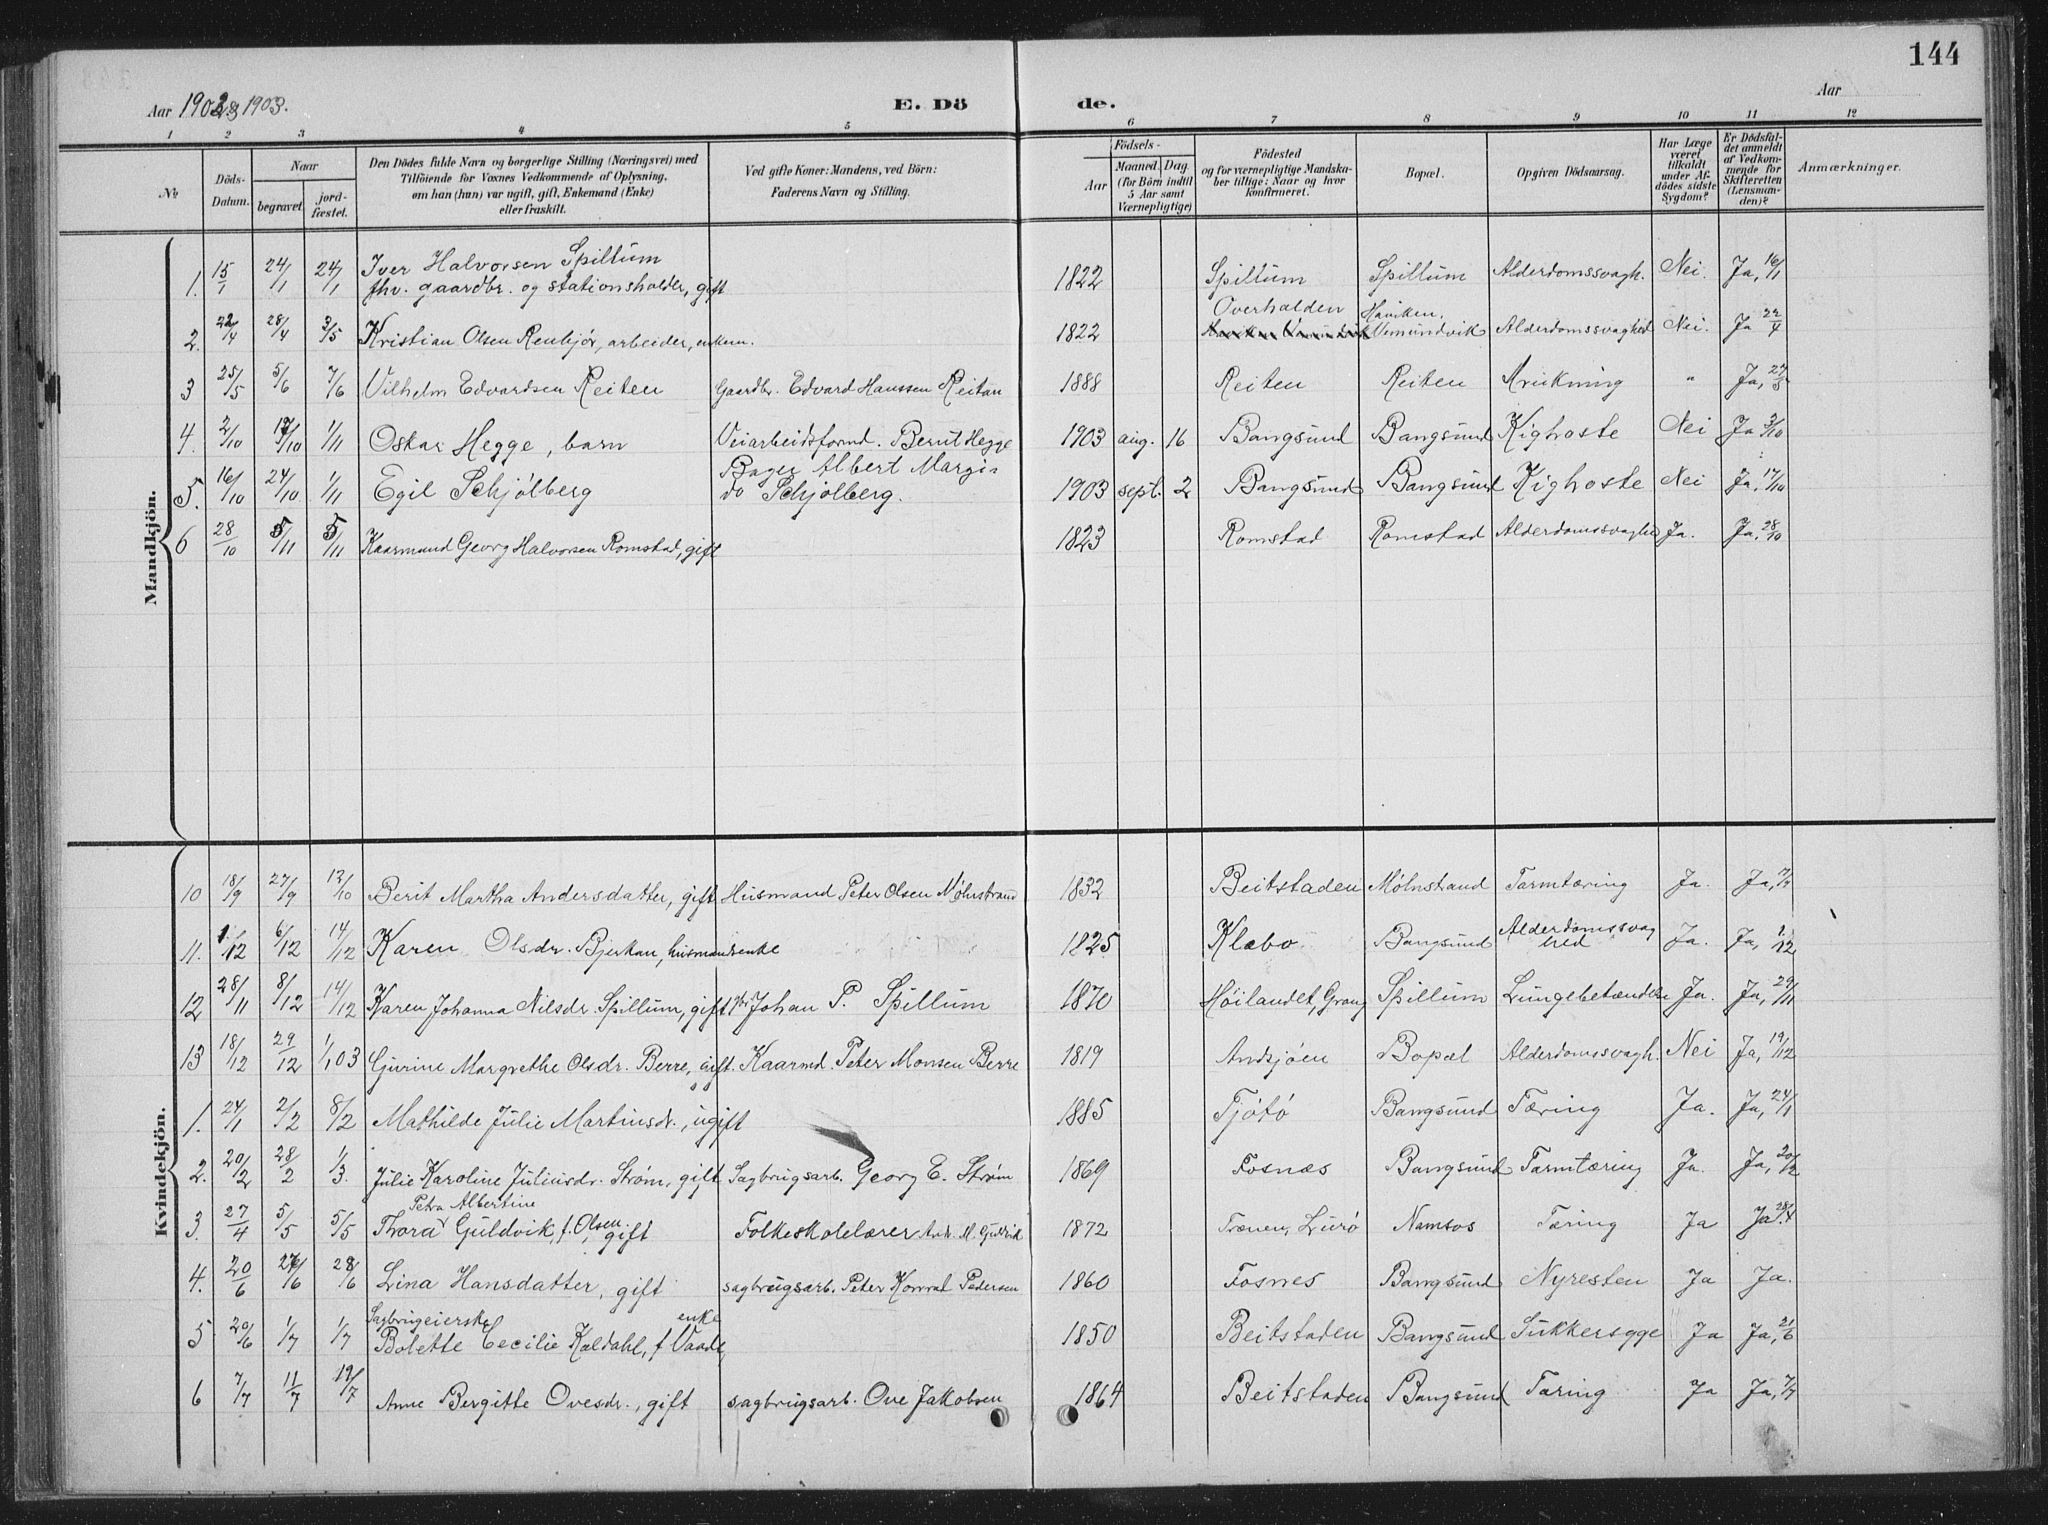 144
Aar 1902-3 1903.
E. Dö
de.
Aar
1 2 3 4 5 6 7 8 9 10 11 12
No
Döds-Datum.
Naar
begravet.
jordfæstet.
Den Dödes fulde Navn og borgerlige Stilling (Næringsvei) med
Tilföiende for Voxnes Vedkommende af Oplysning,
om han (hun) var ugift, gift, Enkemand (Enke)
eller fraskilt.
Ved gifte Koner: Mandens, ved Börn:
Faderens Navn og Stilling.
Födsels-
Aar
Maaned. Dag.
(for Börn indtil
5 Aar samt
Værnepligtige)
Födested
og for værnepligtige Mandska-
ber tillige: Naar og hvor
konfirmeret.
Bopæl.
Opgiven Dödsaarsag.
Har Læge
været
tilkaldt
under Af-
dödes sidste
Sygdom?
Er Dödsfal-
det anmeldt
af Vedkom-
mende for
Skifteretten
(Lensman-
den)?
Anmærkninger.
Mandkjön.
1. 15/1 24/1 24/1 Iver Halvorsen Spillum
fhv. gaardbr. og stationsholder, gift 1822 Spillum Spillum Alderdomssvagh. Nei. Ja, 16/1
2. 22/4 28/4 3/5 Kristian Olsen Renbjör, arbeider, enkem. 1822 Overhalden Haviken, Vemundvik Alderdomssvaghed Nei. Ja 22/4
3 25/5 5/6 7/6 Vilhelm Edvardsen Reiten Gaardbr. Edvard Hanssen Reitan 1888 Reiten Reiten " Ja, 27/5
4. 2/10 1/11 Oskar Hegge, barn Veiarbeidsformd. Bernt Hegge 1903 aug. 16 Bangsund Bangsund Kighoste Nei Ja 3/10
5. 16/10 24/10 1/11 Egil Schjölberg Bager Albert Margi-
do Schjölberg. 1903 sept. 2 Bangsund Bangsund Kighoste Nei Ja, 17/10
6 28/10 5/11 5/11 Kaarmand Georg Halvorsen Romstad, gift 1823 Romstad Romstad Alderdomssvaghed Ja. Ja, 28/10
Kvindekjön.
10 18/9 27/9 12/10 Berit Martha Andersdatter, gift Husmand Peter Olsen Mölnstrand 1832 Beitstaden Mölnstrand Tarmtæring Ja. Ja,
11. 1/12 6/12 14/12 Karen Olsdr. Bjerkan, husmandsenke 1825 Klæbo Bangsund Alderdomssvag
hed Ja. Ja, 1/12
12 28/11 8/12 14/12 Karen Johanna Nilsdr. Spillum, gift Johan P. Spillum 1870 Höilandet, Grong Spillum Lungebetændelse Ja. Ja, 29/11
13 18/12 29/12 1/1 03 Gurine Margrethe Olsdr. Berre, gift. Kaarmd. Peter Monsen Berre 1819 Andsjöen Bopæl Alderdomssvagh. Nei Ja, 19/12
1. 24/1 2/2 8/2 Mathilde Julie Martinsdr., ugift 1885 Tjötö Bangsund Tæring Ja. Ja, 24/1
2. 20/2 28/2 1/3. Julie Karoline Juliusdr. Ström, gift Sagbrugsarb. Georg E. Ström 1869 Fosnæs Bangsund Tarmtæring Ja. Ja, 20/2
Petra Albertine
3. 27/4 5/5 5/5 Thora Guldvik, f. Olsen, gift Folkeskolelærer And. M. Guldvik 1872 Trænen, Lurö Namsos Tæring Ja Ja 28/4
4. 20/6 27/6 28/6 Lina Hansdatter, gift sagbrugsarb. Peter Konrad Pedersen 1860 Fosnes Bangsund Nyresten Ja Ja.
5 20/6 1/7 1/7 Sagbrugeierske enke
Bolette Cecilie Kaldahl, f Vaade, 1850 Beitstaden Bangsund Sukkersyge Ja Ja, 21/6
6 7/7 11/7 12/7 Anne Bergitte Ovesdr., gift sagbrugsarb. Ove Jakobsen 1864 Beitstaden Bangsund Tæring Ja Ja, 7/7